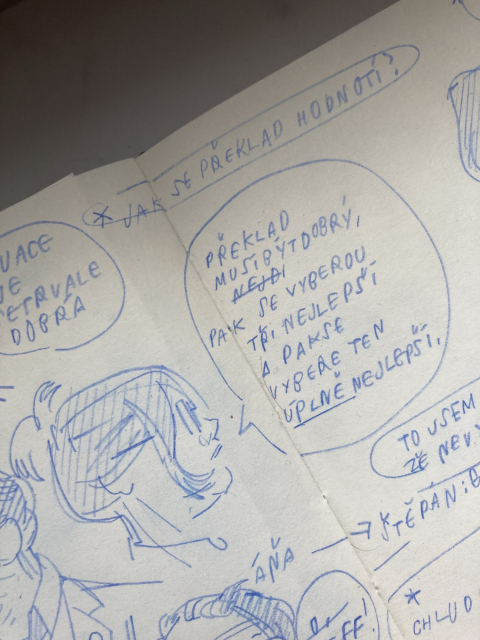 * JAK SE PŘEKLAD HODNOTÍ?
PŘEKLAD
MUSÍ BÝT DOBRÝ,
NEJDŘ
PAK SE VYBEROU
TŘI NEJLEPŠÍ
A PAK SE
VYBERE TEN
ÚPLNĚ NEJLEPŠÍ.
UACE
JE
ETRVALE
DOBRÁ
TO JSEM
ŽE NEV
→ ŠTĚPÁN:
ÁŇA
*
CHLUD
FF!